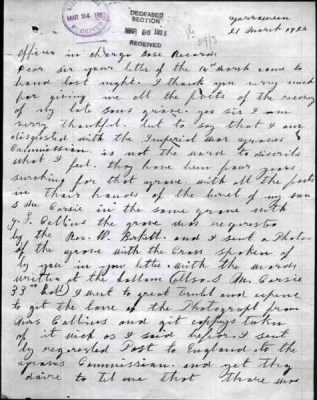 MAR 24 1923
DECEASED
SECTION
MAR 26 1923
RECEIVED
Yarrawonga
21 March 1923
Officer in charge Base Records
Dear Sir your letter of the 14th March came to
hand last night. I thank you verry much
for giving me all the facts of the recovery
of my late sons grave yes sir I am
verry thankfull, but to say that I am
disgusted with the Imperial War graves
Commission is not the word to discribe
what I feel. they have been four years
surching for that grave with all the facts
in their hands of the burel of my son
S Mc Corsie in the same grave with
Collins the grave was regestered
by the Rev. W. and I sent a Photo
of the grove with the Cross spoken of
by you in your letter with the words
written at the bottom Collins. S Mc Corsie
33rd Batt) I went to great Trubel and expence
to get the lone of the Photograph from
Mrs Collins and git coppeys taken
of it wich as I said befor. I sent
by regerested Post to England to the
graves Commission. and yet they
daire to tel me that thare was